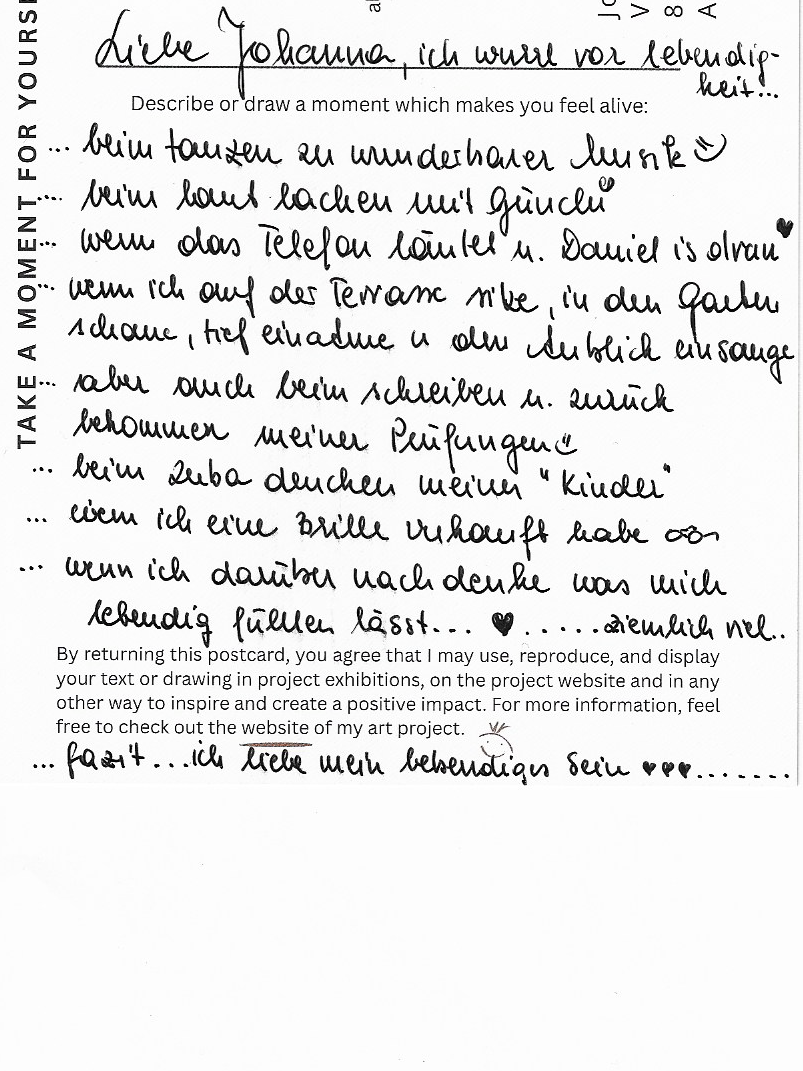 TAKE A MOMENT FOR YOURSE
Liebe Johanna, ich wurrl vor lebendig-
keit...
Describe or draw a moment which makes you feel alive:
... beim tanzen zu wunderbarer Musik
... beim laut lachen mit Günchi
... wenn das Telefon läutet u. Daniel is dran
... wenn ich auf der Terrasse sitze, in den Garten
schaue, tief einatme u den Anblick einsauge
... aber auch beim schreiben u. zurück
bekommen meiner Prüfungen
... beim Zuba denchen meiner "Kinder"
... wenn ich eine Brille verkauft habe
... wenn ich darüber nachdenke was mich
lebendig fühlen lässt... ......ziemlich viel..
By returning this postcard, you agree that I may use, reproduce, and display
your text or drawing in project exhibitions, on the project website and in any
other way to inspire and create a positive impact. For more information, feel
free to check out the website of my art project.
... fazit...ich liebe mein lebendiges Sein .......